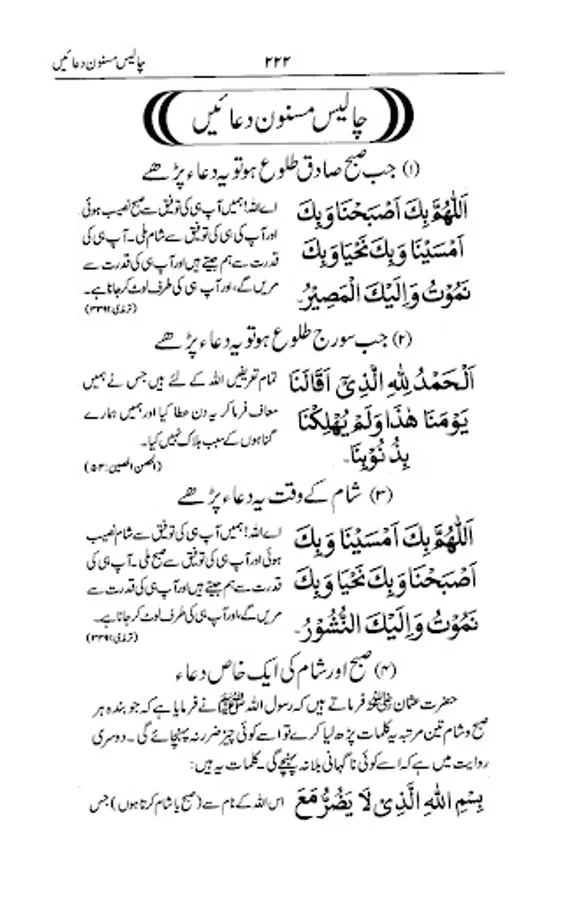 چالیس مسنون دعائیں ۲۲۲
چالیس مسنون دعائیں
(۱) جب صبح صادق طلوع ہو تو یہ دعاء پڑھے
اَللّٰهُمَّ بِكَ اَصْبَحْنَا وَبِكَ
اَمْسَيْنَا وَبِكَ نَحْيَا وَبِكَ
نَمُوْتُ وَاِلَيْكَ الْمَصِيْرُ۔
اے اللہ! ہمیں آپ ہی کی توفیق سے صبح نصیب ہوئی
اور آپ کی ہی کی توفیق سے شام ملی۔ آپ ہی کی
قدرت سے ہم جیتے ہیں اور آپ ہی کی قدرت سے
مریں گے، اور آپ ہی کی طرف لوٹ کر جانا ہے۔
(ترمذی: ۳۳۹۱)
(۲) جب سورج طلوع ہو تو یہ دعاء پڑھے
اَلْحَمْدُ لِلّٰهِ الَّذِيْ اَقَالَنَا
يَوْمَنَا هٰذَا وَلَمْ يُهْلِكْنَا
بِذُنُوْبِنَا۔
تمام تعریفیں اللہ کے لئے ہیں جس نے ہمیں
معاف فرما کر یہ دن عطا کیا اور ہمیں ہمارے
گناہوں کے سبب ہلاک نہیں کیا۔
(الحصن الحصین: ۵۴)
(۳) شام کے وقت یہ دعاء پڑھے
اَللّٰهُمَّ بِكَ اَمْسَيْنَا وَبِكَ
اَصْبَحْنَا وَبِكَ نَحْيَا وَبِكَ
نَمُوْتُ وَاِلَيْكَ النُّشُوْرُ۔
اے اللہ! ہمیں آپ ہی کی توفیق سے شام نصیب
ہوئی اور آپ ہی کی توفیق سے صبح ملی۔ آپ ہی کی
قدرت سے ہم جیتے ہیں اور آپ ہی کی قدرت سے
مریں گے، اور آپ ہی کی طرف لوٹ کر جانا ہے۔
(ترمذی: ۳۳۹۱)
(۴) صبح اور شام کی ایک خاص دعاء
حضرت عثمان رضی اللہ عنہ فرماتے ہیں کہ رسول اللہ ﷺ نے فرمایا ہے کہ جو بندہ ہر
صبح و شام تین مرتبہ یہ کلمات پڑھ لیا کرے تو اسے کوئی چیز ضرر نہ پہنچائے گی۔ دوسری
روایت میں ہے کہ اسے کوئی ناگہانی بلا نہ پہنچے گی۔ کلمات یہ ہیں:
بِسْمِ اللّٰهِ الَّذِيْ لَا يَضُرُّ مَعَ
اس اللہ کے نام سے (صبح یا شام کرتا ہوں) جس